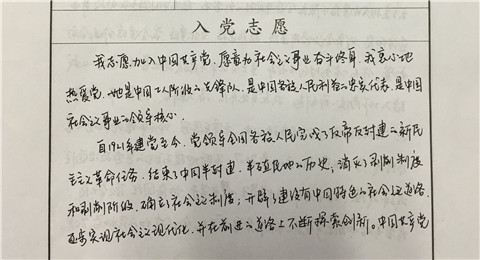 入党志愿
我志愿加入中国共产党，愿意为社会主义事业奋斗终身。我衷心地
热爱党，她是中国工人阶级的先锋队，是中国各族人民利益的忠实代表，是中国
社会主义事业的领导核心。
自1921年建党至今，党领导全国各族人民完成了反帝反封建的新民
主主义革命任务，结束了中国半封建、半殖民地的历史，消灭了剥削制度
和剥削阶级，确立了社会主义制度，开辟了建设有中国特色的社会主义道路，
逐步实现社会主义现代化，并在前进的道路上不断探索创新。中国共产党